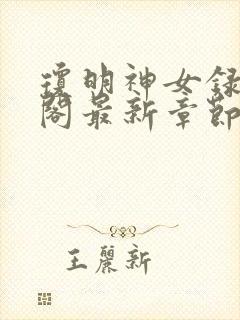 瓊明神女録
閣最新章節
王麗新